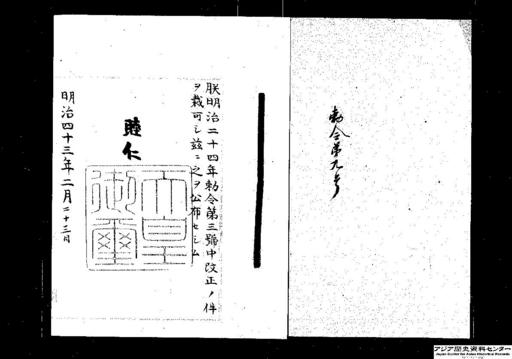 勅令第九号
朕明治二十四年勅令第三號中改正ノ件
ヲ裁可シ茲ニ之ヲ公布セシム
睦仁
天皇
御璽
明治四十三年二月二十三日
アジア歴史資料センター
Japan Center for Asian Historical Records